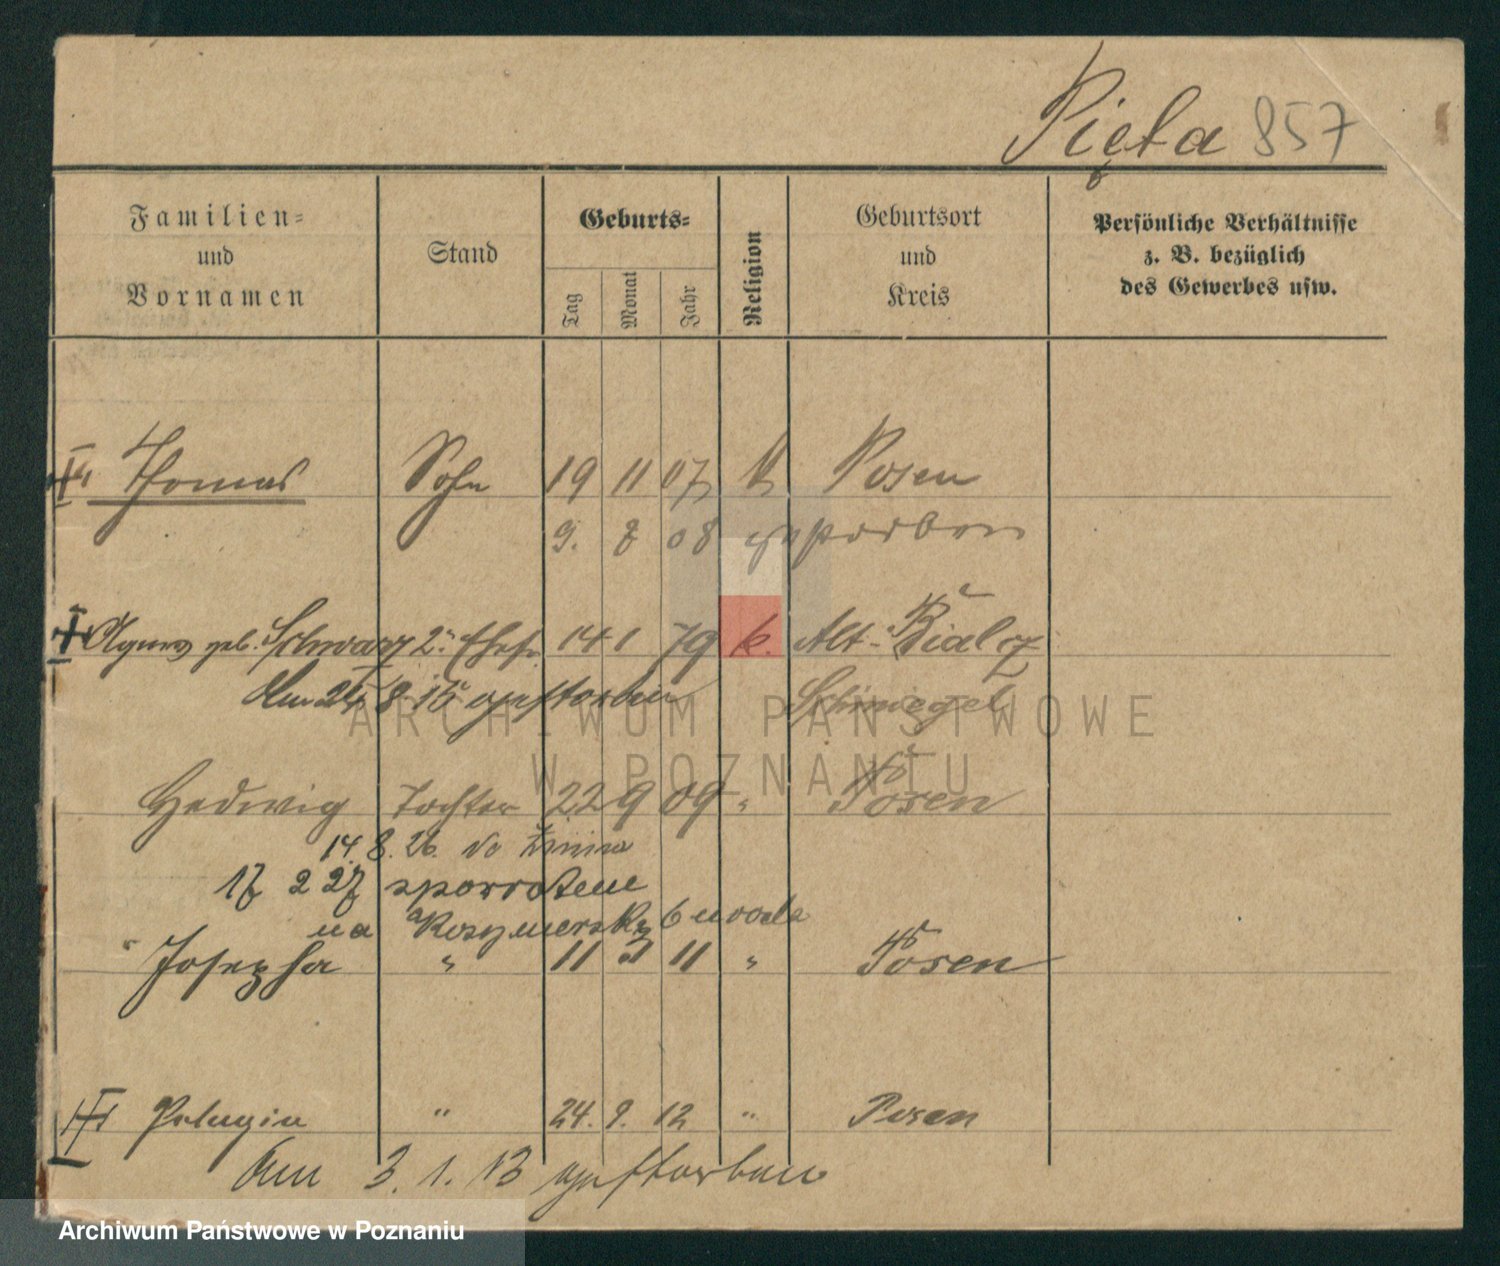 Pięta 857
Familien- und Vornamen
Stand
Geburts-
Tag
Monat
Jahr
Religion
Geburtsort und Kreis
Persönliche Verhältnisse z. B. bezüglich des Gewerbes usw.
Thomas Sohn 19 11 07 k Posen
9. 8 08 gestorben
Agnes geb. Schwarz 2. Ehefr 14 1 79 k. Alt-Bialcz
Am 24/8. 15 gestorben Schmiegel
Hedwig Tochter 22 9 09 " Posen
14. 8. 26. do Żnina
17 2 27 zpowrotem
na
Josepha " 11 3 11 " Posen
Pelagia " 24. 9. 12 " Posen
Am 3. 1. 13 gestorben
ARCHIWUM PAŃSTWOWE
W POZNANIU
Archiwum Państwowe w Poznaniu